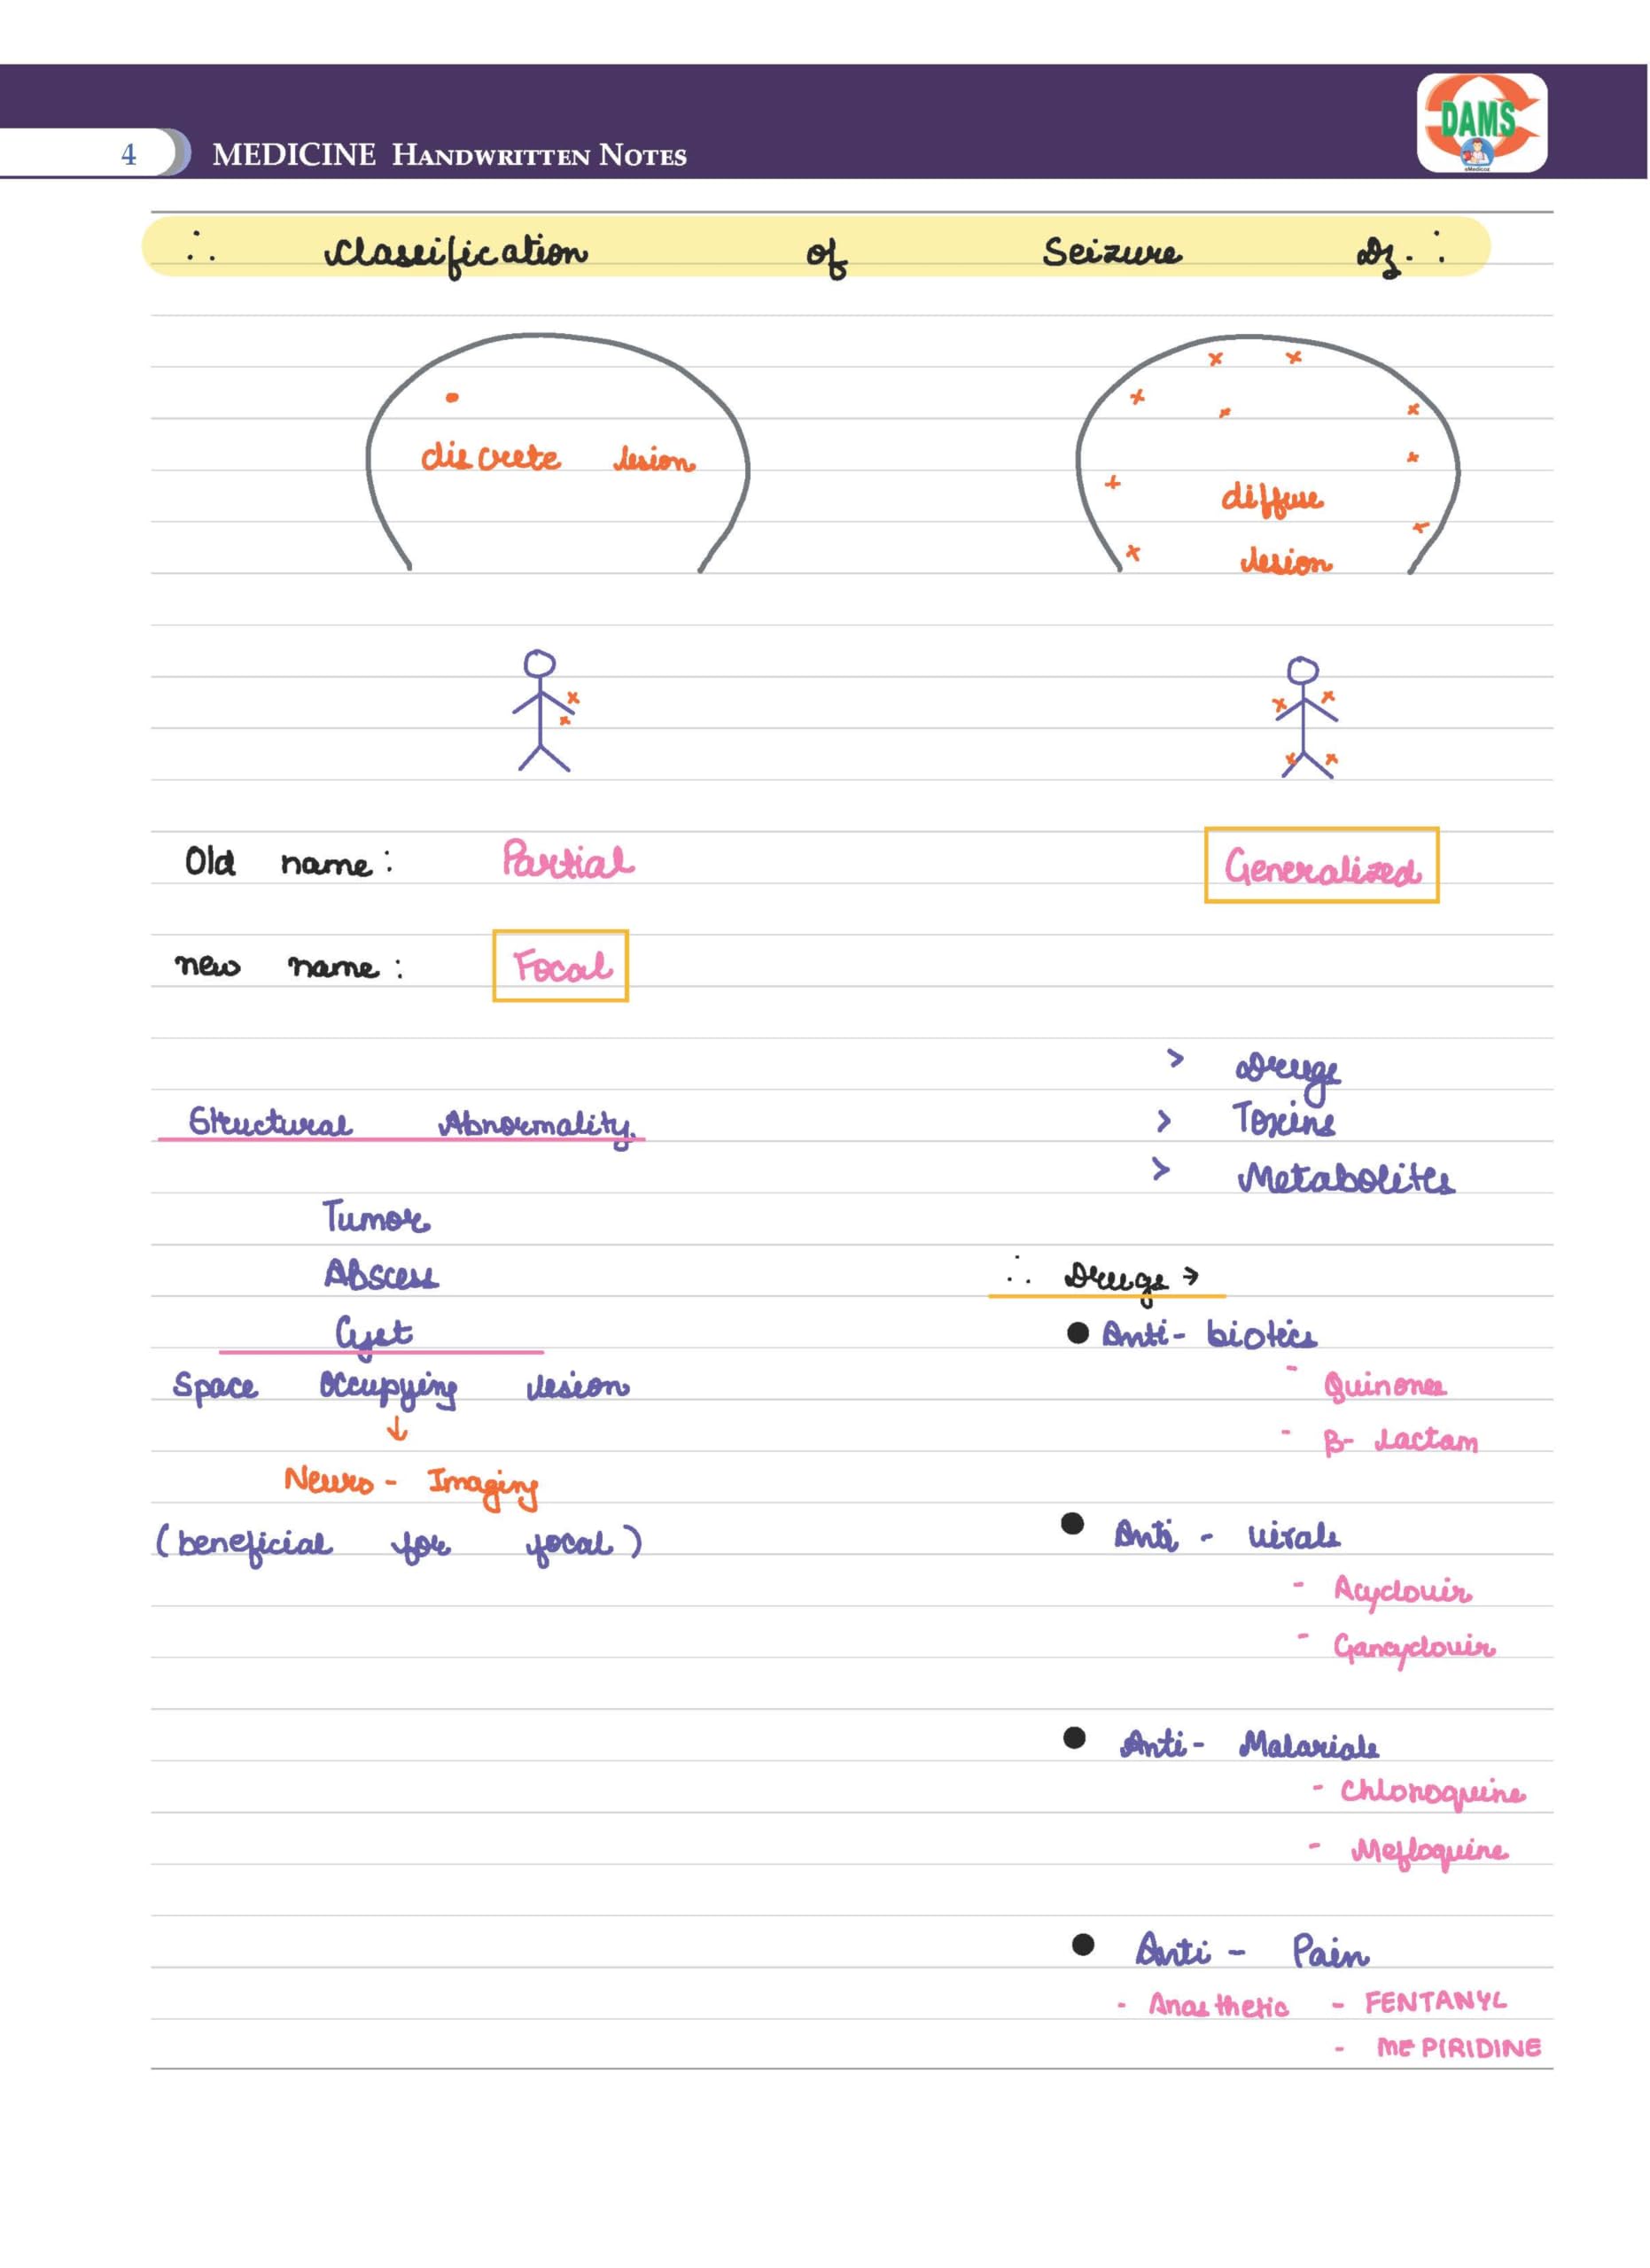 4 MEDICINE HANDWRITTEN NOTES
DAMS
eMedicoz
∴ Classification of Seizure Dz. ∴
discrete lesion
diffuse
lesion
Old name: Partial
Generalized
new name: Focal
Structural Abnormality
Tumor
Abscess
Cyst
Space Occupying lesion
↓
Neuro - Imaging
(beneficial for focal)
> Drugs
> Toxins
> Metabolites
∴ Drugs →
● Anti - biotics
- Quinones
- β- lactam
● Anti - virals
- Acyclovir
- Gancyclovir
● Anti - Malarials
- Chloroquine
- Mefloquine
● Anti - Pain
- Anasthetic - FENTANYL
- MEPIRIDINE